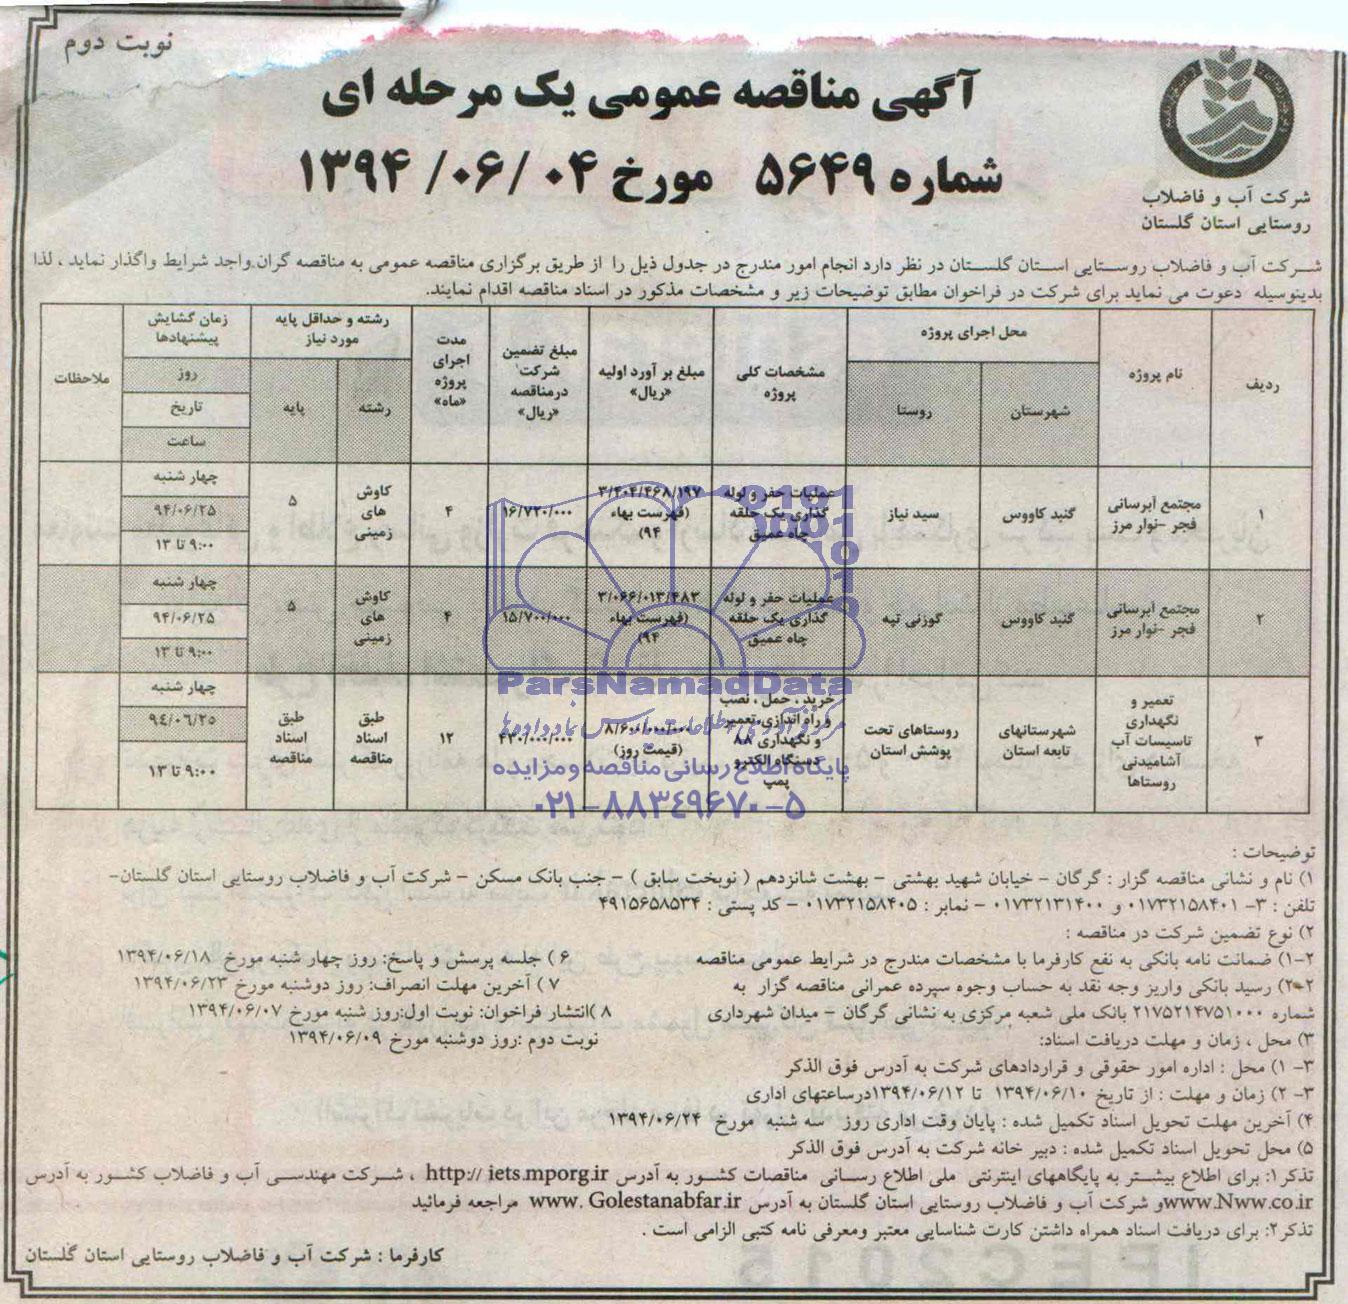 نوبت دوم
آگهی مناقصه عمومی یک مرحله ای
شماره ۵۶۴۹ مورخ ۰۴/ ۰۶/ ۱۳۹۴
شرکت آب و فاضلاب
روستایی استان گلستان
شرکت آب و فاضلاب روستایی استان گلستان در نظر دارد انجام امور مندرج در جدول ذیل را از طریق برگزاری مناقصه عمومی به مناقصه گران واجد شرایط واگذار نماید ، لذا
بدینوسیله دعوت می نماید برای شرکت در فراخوان مطابق توضیحات زیر و مشخصات مذکور در اسناد مناقصه اقدام نمایند.
ردیف
نام پروژه
محل اجرای پروژه
شهرستان
روستا
مشخصات کلی
پروژه
مبلغ بر آورد اولیه
«ریال»
مبلغ تضمین
شرکت
درمناقصه
«ریال»
مدت
اجرای
پروژه
«ماه»
رشته و حداقل پایه
مورد نیاز
رشته
پایه
زمان گشایش
پیشنهادها
روز
تاریخ
ساعت
ملاحظات
۱
مجتمع آبرسانی
فجر -نوار مرز
گنبد کاووس
سید نیاز
عملیات حفر و لوله
گذاری یک حلقه
چاه عمیق
۳/۴۰۴/۴۶۸/۱۹۷
(فهرست بهاء
۹۴)
۱۶/۷۲۰/۰۰۰
۴
کاوش
های
زمینی
۵
چهار شنبه
۹۴/۰۶/۲۵
۹:۰۰ تا ۱۳
۲
مجتمع آبرسانی
فجر -نوار مرز
گنبد کاووس
گوزنی تپه
عملیات حفر و لوله
گذاری یک حلقه
چاه عمیق
۳/۰۶۶/۰۱۳/۴۸۳
(فهرست بهاء
۹۴)
۱۵/۷۰۰/۰۰۰
۴
کاوش
های
زمینی
۵
چهار شنبه
۹۴/۰۶/۲۵
۹:۰۰ تا ۱۳
۳
تعمیر و
نگهداری
تاسیسات آب
آشامیدنی
روستاها
شهرستانهای
تابعه استان
روستاهای تحت
پوشش استان
خرید ، حمل ، نصب
و راه اندازی،تعمیر
و نگهداری ۸۸
دستگاه الکترو
پمپ
۸/۶۰۰/۰۰۰/۰۰۰
(قیمت روز)
۴۳۰/۰۰۰/۰۰۰
۱۲
طبق
اسناد
مناقصه
طبق
اسناد
مناقصه
چهار شنبه
۹٤/۰٦/۲۵
۹:۰۰ تا ۱۳
ParsNamadData
مرکز فرآوری اطلاعات پارس نماد داده ها
پایگاه اطلاع رسانی مناقصه و مزایده
۰۲۱-۸۸۳٤۹٦۷۰-۵
توضیحات :
۱) نام و نشانی مناقصه گزار : گرگان - خیابان شهید بهشتی - بهشت شانزدهم ( نوبخت سابق ) - جنب بانک مسکن - شرکت آب و فاضلاب روستایی استان گلستان-
تلفن : ۳- ۰۱۷۳۲۱۵۸۴۰۱ و ۰۱۷۳۲۱۳۱۴۰۰ - نمابر : ۰۱۷۳۲۱۵۸۴۰۵ - کد پستی : ۴۹۱۵۶۵۸۵۳۴
۲) نوع تضمین شرکت در مناقصه :
۲-۱) ضمانت نامه بانکی به نفع کارفرما با مشخصات مندرج در شرایط عمومی مناقصه
۲-۲) رسید بانکی واریز وجه نقد به حساب وجوه سپرده عمرانی مناقصه گزار به
شماره ۲۱۷۵۲۱۴۷۵۱۰۰۰ بانک ملی شعبه مرکزی به نشانی گرگان - میدان شهرداری
۳) محل ، زمان و مهلت دریافت اسناد:
۳- ۱) محل : اداره امور حقوقی و قراردادهای شرکت به آدرس فوق الذکر
۳- ۲) زمان و مهلت : از تاریخ ۱۳۹۴/۰۶/۱۰ تا ۱۳۹۴/۰۶/۱۲درساعتهای اداری
۴) آخرین مهلت تحویل اسناد تکمیل شده : پایان وقت اداری روز سه شنبه مورخ ۱۳۹۴/۰۶/۲۴
۵) محل تحویل اسناد تکمیل شده : دبیر خانه شرکت به آدرس فوق الذکر
۶ ) جلسه پرسش و پاسخ: روز چهار شنبه مورخ ۱۳۹۴/۰۶/۱۸
۷ ) آخرین مهلت انصراف: روز دوشنبه مورخ ۱۳۹۴/۰۶/۲۳
۸ )انتشار فراخوان: نوبت اول:روز شنبه مورخ ۱۳۹۴/۰۶/۰۷
نوبت دوم :روز دوشنبه مورخ ۱۳۹۴/۰۶/۰۹
تذکر۱: برای اطلاع بیشتر به پایگاههای اینترنتی ملی اطلاع رسانی مناقصات کشور به آدرس http:// iets.mporg.ir ، شرکت مهندسی آب و فاضلاب کشور به آدرس
www.Nww.co.irو شرکت آب و فاضلاب روستایی استان گلستان به آدرس www. Golestanabfar.ir مراجعه فرمائید
تذکر۲: برای دریافت اسناد همراه داشتن کارت شناسایی معتبر ومعرفی نامه کتبی الزامی است .
کارفرما : شرکت آب و فاضلاب روستایی استان گلستان